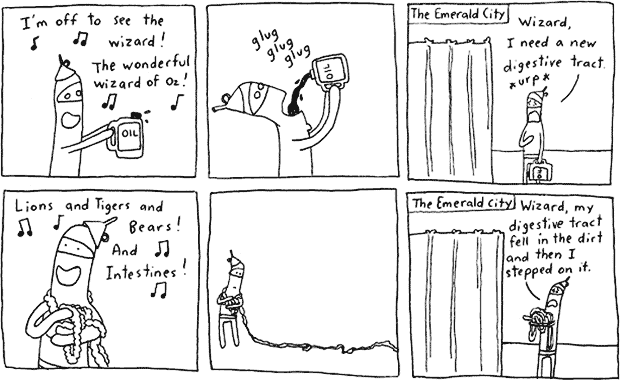 I'm off to see the
wizard!
The wonderful
wizard of Oz!
OIL
glug
glug
glug
OIL
The Emerald City
Wizard,
I need a new
digestive tract.
*urp*
Lions and Tigers and
Bears!
And
Intestines!
The Emerald City
Wizard, my
digestive tract
fell in the dirt
and then I
stepped on it.